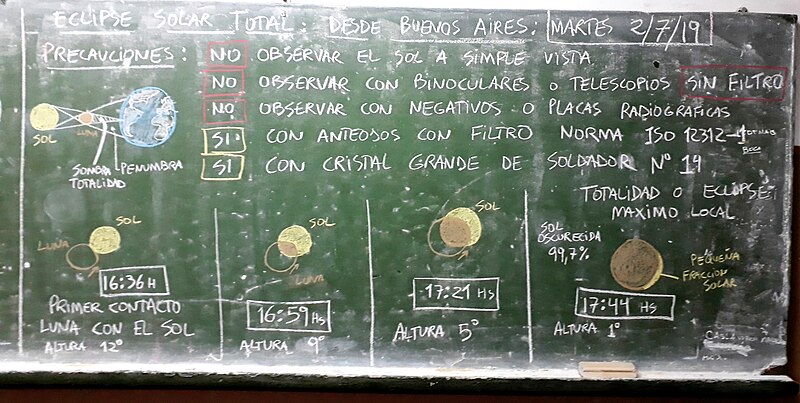 ECLIPSE SOLAR TOTAL: DESDE BUENOS AIRES: MARTES 2/7/19
PRECAUCIONES: NO OBSERVAR EL SOL A SIMPLE VISTA
NO OBSERVAR CON BINOCULARES O TELESCOPIOS SIN FILTRO
NO OBSERVAR CON NEGATIVOS O PLACAS RADIOGRAFICAS
SI CON ANTEOJOS CON FILTRO NORMA ISO 12312-1
SI CON CRISTAL GRANDE DE SOLDADOR Nº 14
SOL
LUNA
SOMBRA
TOTALIDAD
PENUMBRA
SOL
LUNA
16:36 H
PRIMER CONTACTO
LUNA CON EL SOL
ALTURA 12º
SOL
LUNA
16:59 Hs
ALTURA 9º
SOL
17:21 Hs
ALTURA 5º
TOTALIDAD O ECLIPSE
MAXIMO LOCAL
SOL
OSCURECIDA
99,7%
PEQUEÑA
FRACCION
SOLAR
17:44 Hs
ALTURA 1º